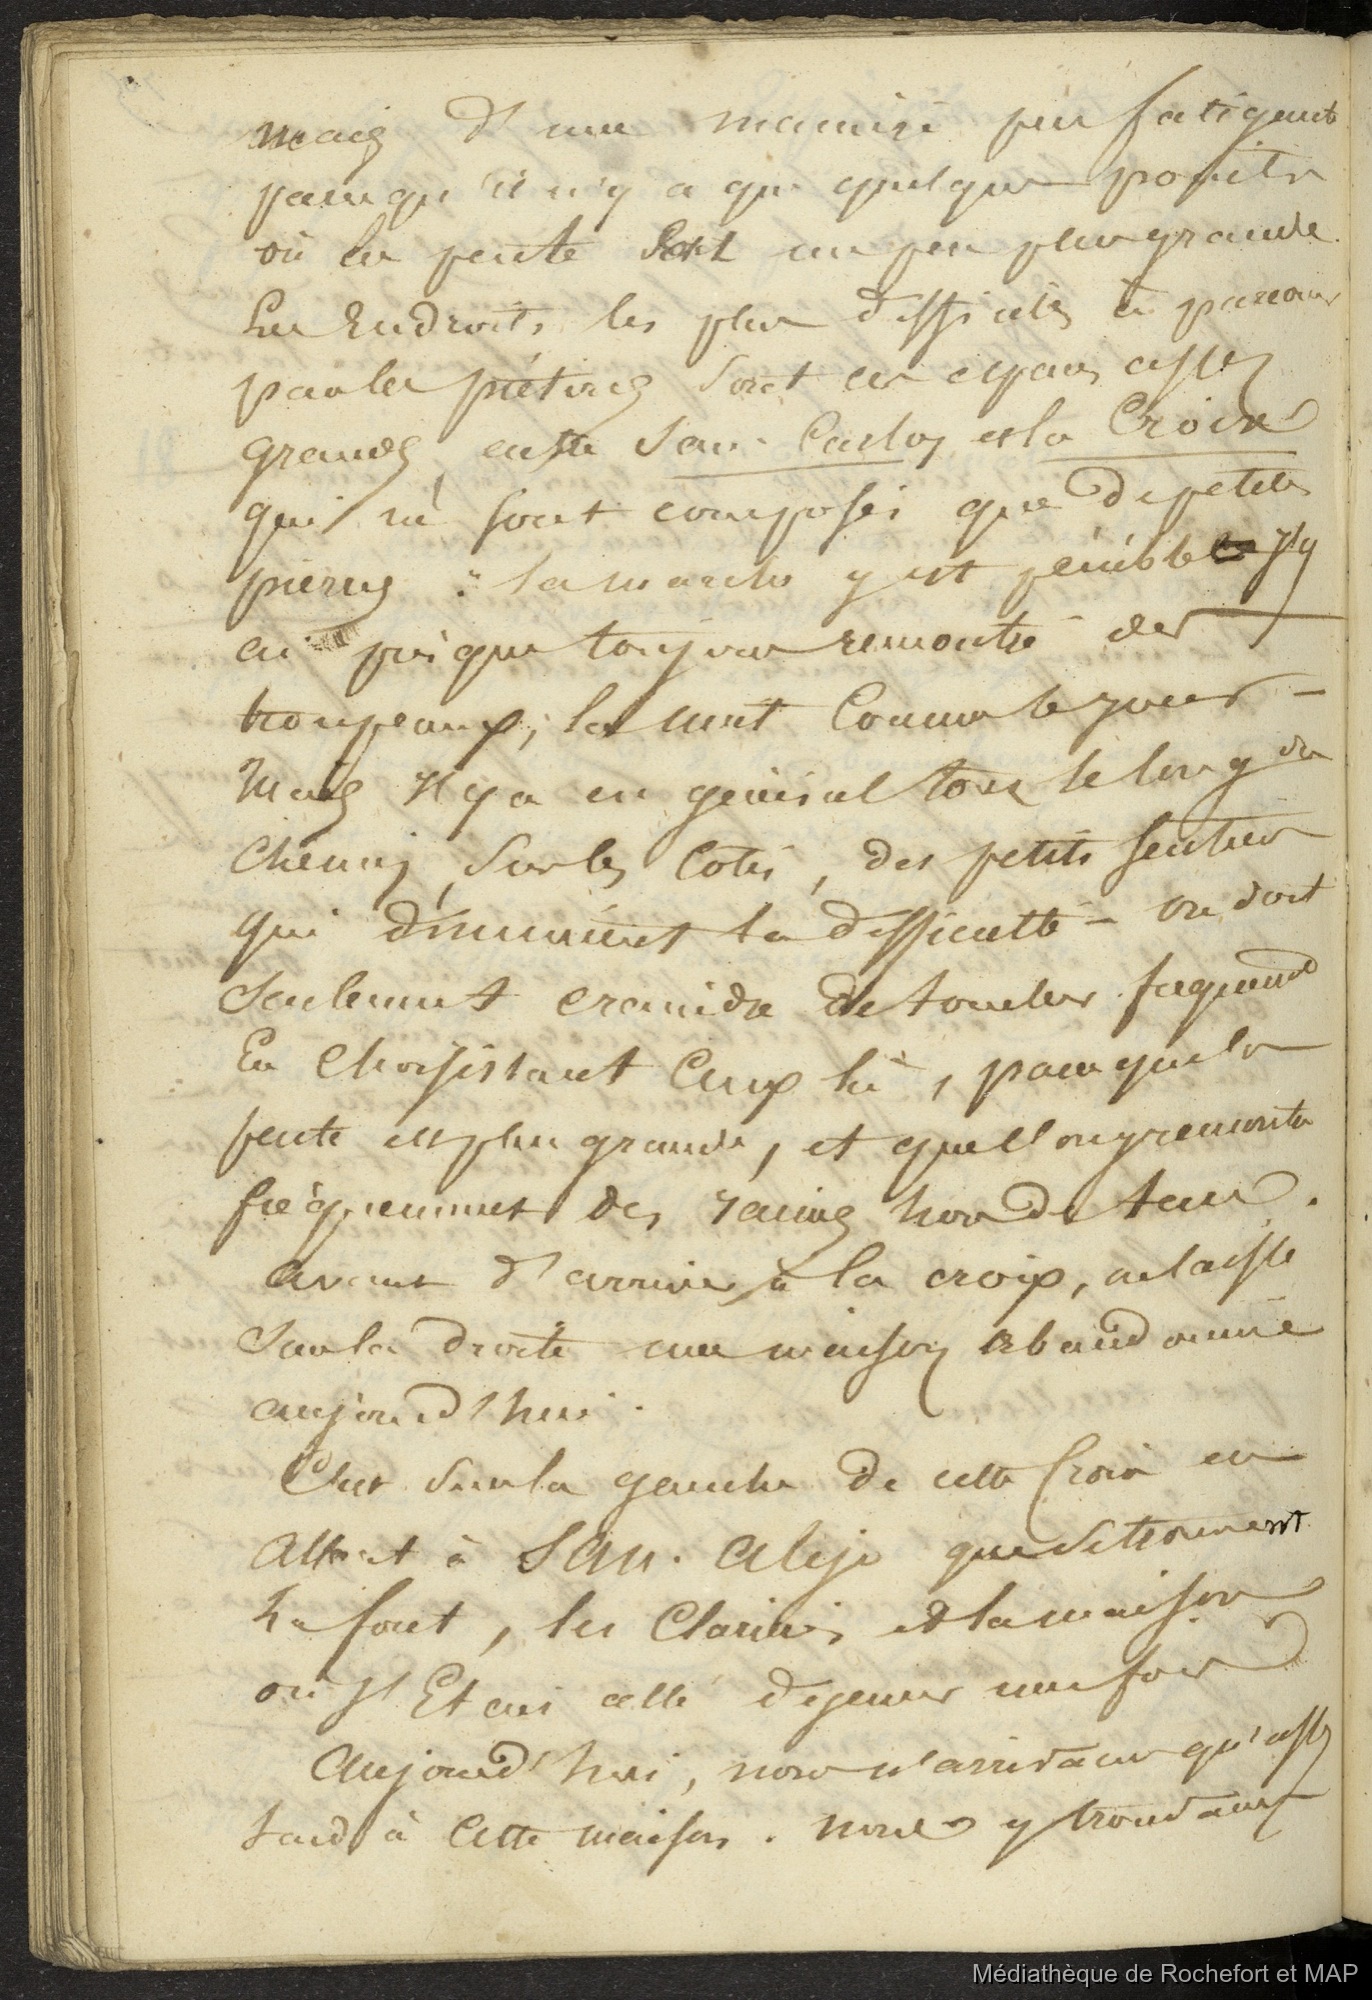 mais d'une manière peu fatigante
parcequ'il n'y a que quelques points
où la pente soit un peu plus grande.
Les Endroits les plus difficiles à parcour
par les piétons sont ces espaces assez
grands, entre San. Carlos et la Croix
qui ne sont composés que de petites
pierres : la marche y est pénible J'y
ai presque toujours rencontré des
troupeaux, la nuit comme le jour –
Mais il y a en général tout le long du
chemin, sur les cotés, des petits sentiers
qui diminuent la difficulté – on doit
seulement craindre de tomber fréquemt
En choisissant ceux là, parceque la
pente est plus grande, et que l'on y rencontre
fréquemment des racines hors de terre.
avant d'arriver à la croix, on laisse
sur la droite une maison abandonnée
aujourd'hui.
C'est sur la gauche de cette Croix en
allant à San. Alejo que se trouvent
le fort, les Clarines et la maison
où J'Etais allé dejeuner une fois
Aujourd'hui, nous n'arrivames qu'assez
tard à cette maison. nous y trouvames
Médiathèque de Rochefort et MAP